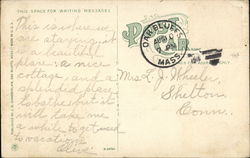 THIS SPACE FOR WRITING MESSAGES
This is where we
are staying it
is a beautiful
place, a nice
cottage, and a
splendid place
to bathe but it
will take me
a while to get used
to vacations
POST
OAK BLUFFS
MASS.
Mrs. E. J. Wheeler,
Shelton
Conn.